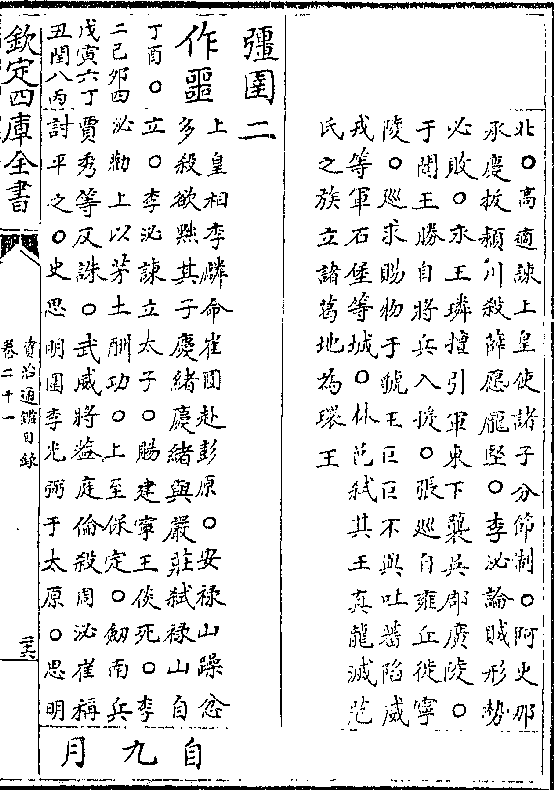 北〇高適諫上皇使諸子分節制〇阿史那
承慶拔潁川殺薛愿龐堅〇李泌論賊形勢
必敗〇永王璘擅引軍東下襲吳郡廣陵〇
于闐王勝自將兵入援〇張巡自雍丘徙寧
陵〇巡求賜物于虢王巨巨不與吐蕃陷威
戎等軍石堡等城〇林邑弑其王真龍滅范
氏之族立諸葛地為環王
彊圉二
作噩
丁酉〇
二己夘四
戊寅六丁
丑閏八丙
上皇相李麟命崔圓赴彭原〇安禄山躁忿
多殺欲黜其子慶緒慶緒與嚴莊弑禄山自
立〇李泌諫立太子〇賜建寧王倓死〇李
泌勸上以茅土酬功〇上至保定〇劒南兵
賈秀等反誅〇武威將葢庭倫殺周泌崔稱
討平之〇史思明圍李光弼于太原〇思明
自九月
欽定四庫全書
資治通鑑目録
卷二十一